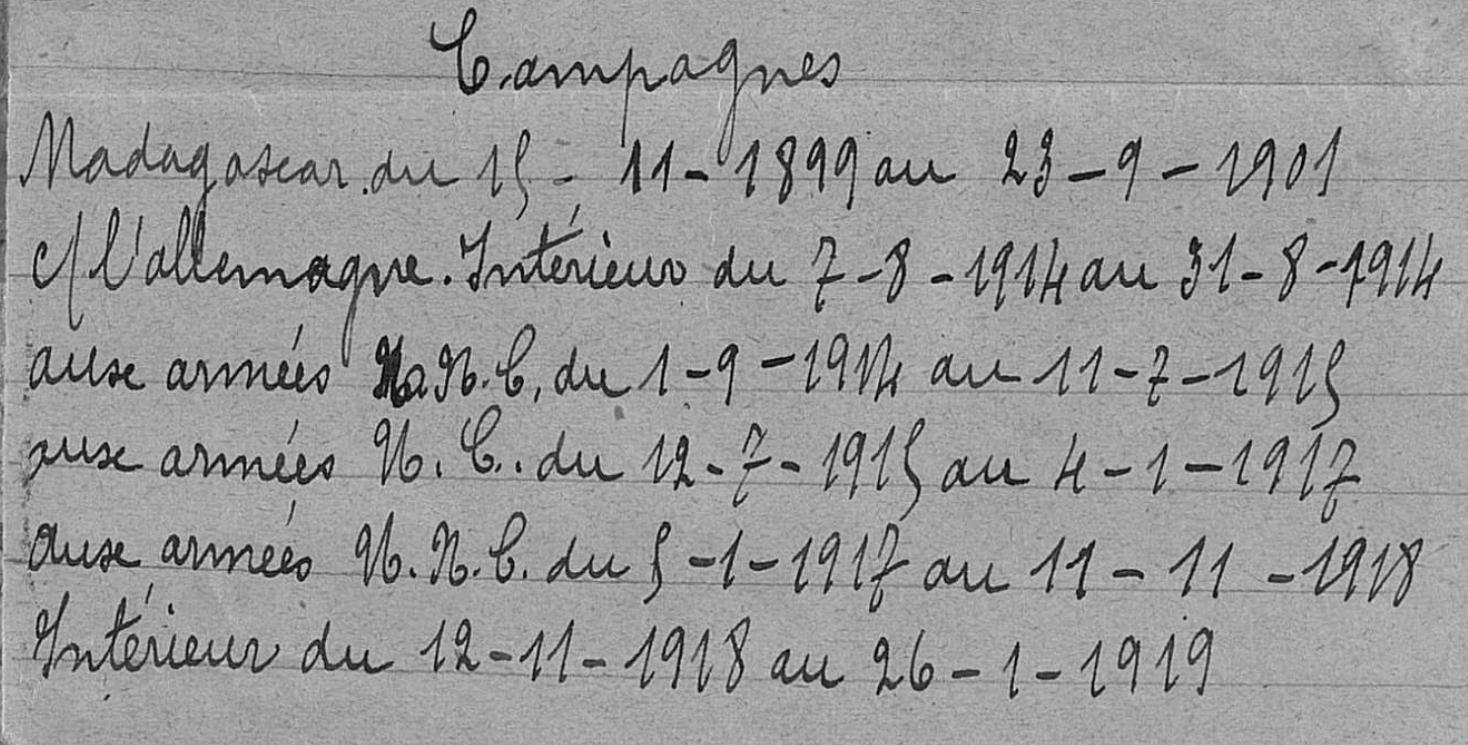 Campagnes
Madagascar du 15 - 11 - 1899 au 23 - 9 - 1901
c/ l'allemagne. Intérieur du 7 - 8 - 1914 au 31 - 8 - 1914
aux armées N. C. du 1 - 9 - 1914 au 11 - 7 - 1915
aux armées N. C. du 12 - 7 - 1915 au 4 - 1 - 1917
aux armées N. N. C. du 5 - 1 - 1917 au 11 - 11 - 1918
Intérieur du 12 - 11 - 1918 au 26 - 1 - 1919